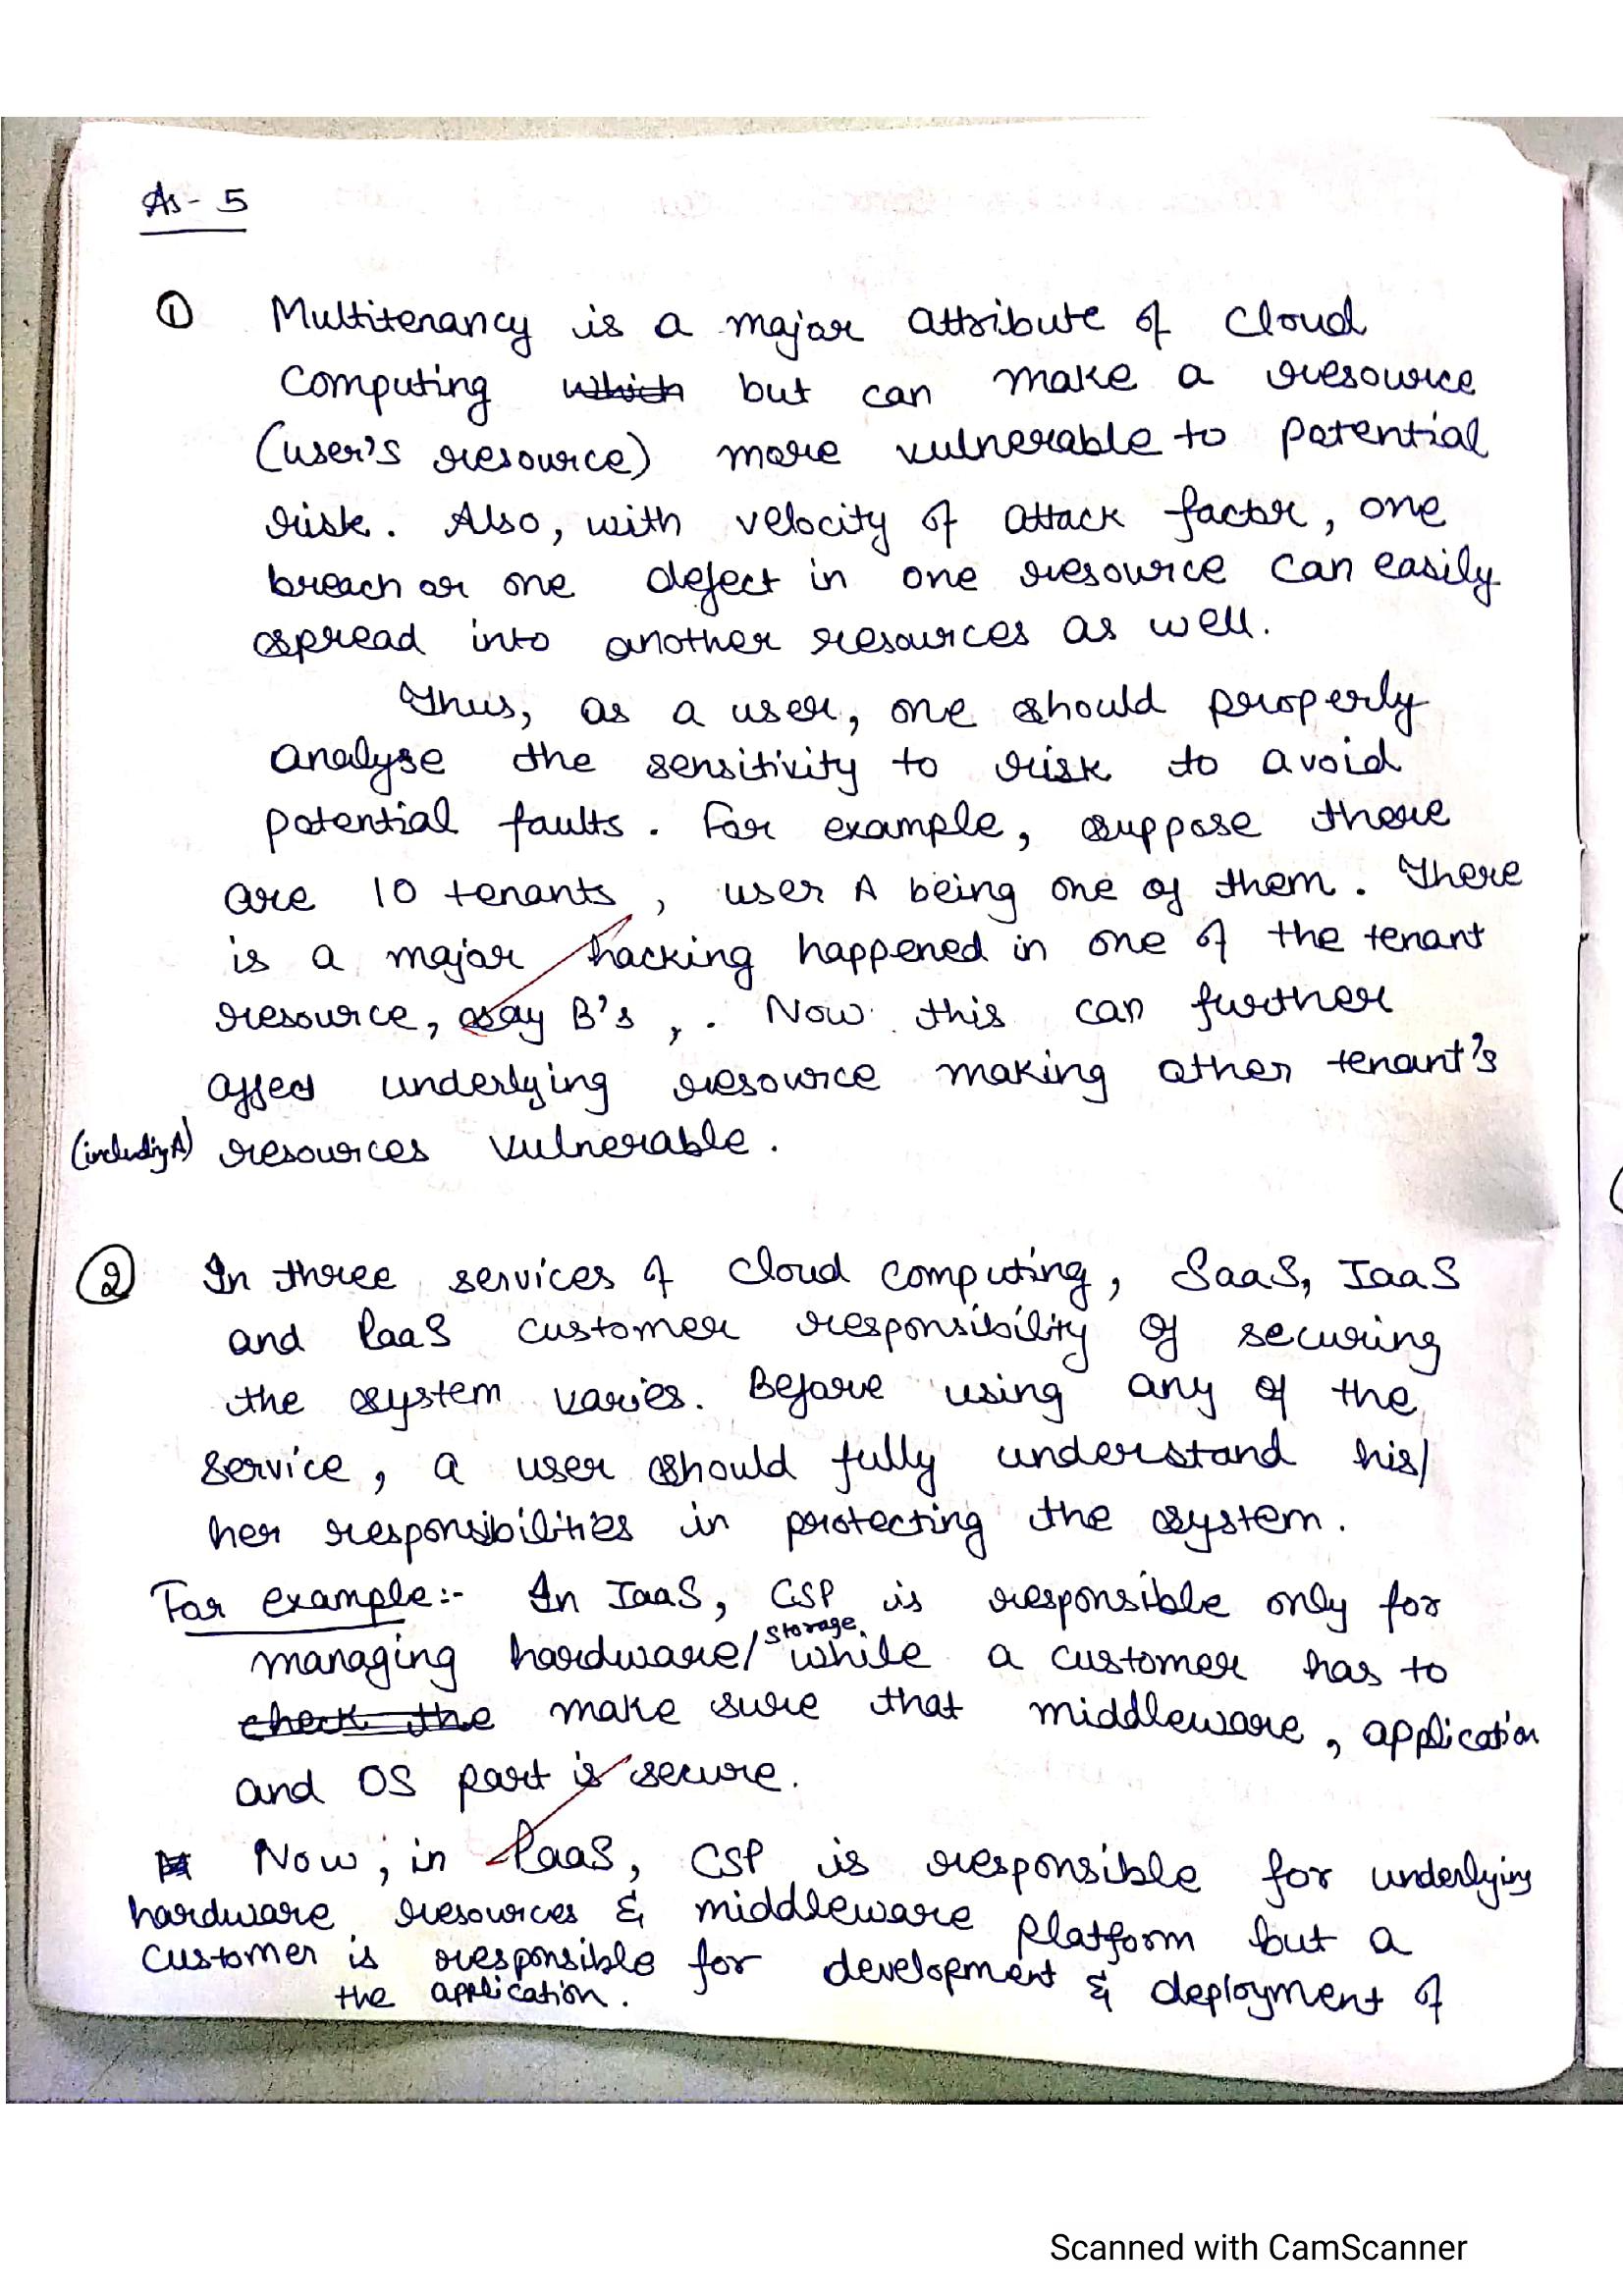 As - 5
① Multitenancy is a major attribute of Cloud
Computing which but can make a resource
(user's resource) more vulnerable to potential
risk. Also, with velocity of attack factor, one
breach or one defect in one resource can easily
spread into another resources as well.
Thus, as a user, one should properly
analyse the sensitivity to risk to avoid
potential faults. For example, suppose there
are 10 tenants, user A being one of them. There
is a major hacking happened in one of the tenant
resource, say B's,. Now this can further
affect underlying resource making other tenant's
(including A) resources vulnerable.
② In three services of Cloud computing, SaaS, IaaS
and PaaS customer responsibility of securing
the system varies. Before using any of the
service, a user should fully understand his/
her responsibilities in protecting the system.
For example:- In IaaS, CSP is responsible only for
managing hardware/storage while a customer has to
check the make sure that middleware, application
and OS part is secure.
Now, in PaaS, CSP is responsible for underlying
hardware resources & middleware platform but a
customer is responsible for development & deployment of
the application.
Scanned with CamScanner